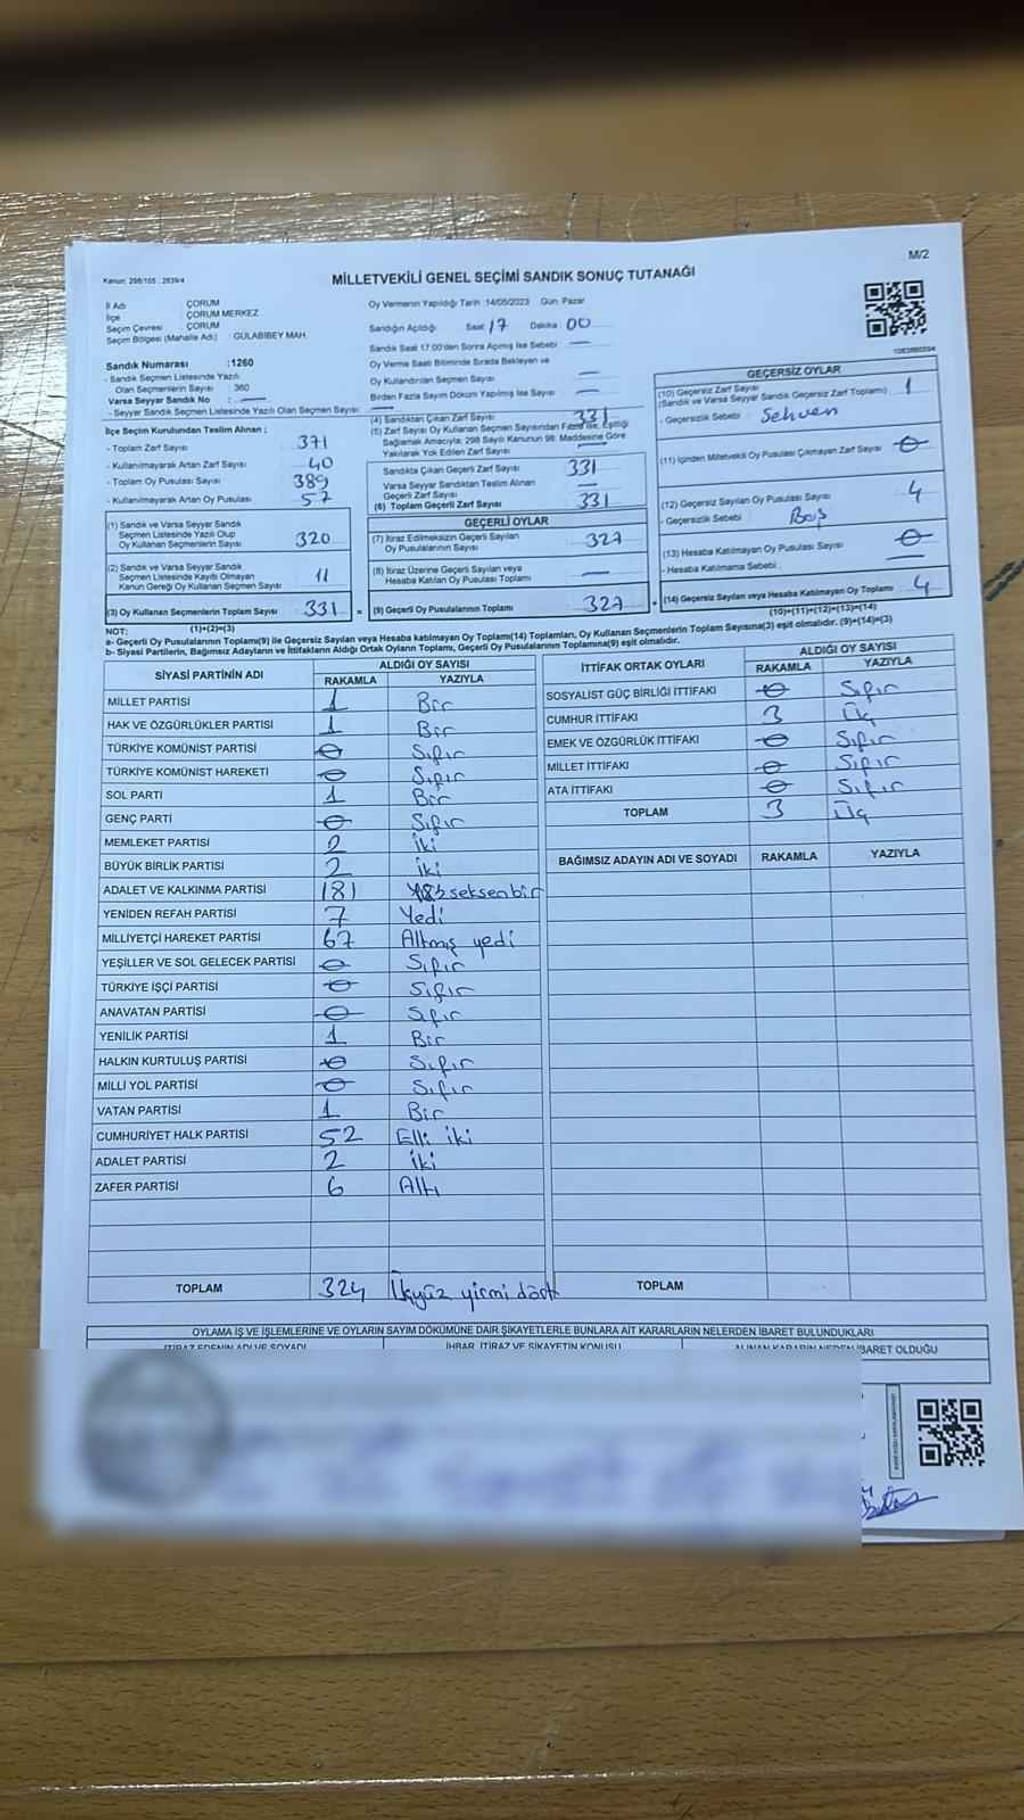 M/2
Kanun: 298/105 : 2839/4
MİLLETVEKİLİ GENEL SEÇİMİ SANDIK SONUÇ TUTANAĞI
İl Adı ÇORUM
İlçe ÇORUM MERKEZ
Seçim Çevresi ÇORUM
Seçim Bölgesi (Mahalle Adı) : GÜLABİBEY MAH.
Sandık Numarası :1260
- Sandık Seçmen Listesinde Yazılı
Olan Seçmenlerin Sayısı : 360
Varsa Seyyar Sandık No : —
- Seyyar Sandık Seçmen Listesinde Yazılı Olan Seçmen Sayısı: —
İlçe Seçim Kurulundan Teslim Alınan :
- Toplam Zarf Sayısı 371
- Kullanılmayarak Artan Zarf Sayısı 40
- Toplam Oy Pusulası Sayısı 389
- Kullanılmayarak Artan Oy Pusulası 57
(1) Sandık ve Varsa Seyyar Sandık
Seçmen Listesinde Yazılı Olup
Oy Kullanan Seçmenlerin Sayısı 320
(2) Sandık ve Varsa Seyyar Sandık
Seçmen Listesinde Kaydı Olmayan
Kanun Gereği Oy Kullanan Seçmen Sayısı 11
(3) Oy Kullanan Seçmenlerin Toplam Sayısı 331 =
(1)+(2)=(3)
Oy Vermenin Yapıldığı Tarih :14/05/2023 Gün: Pazar
Sandığın Açıldığı Saat : 17 Dakika : 00
Sandık Saat 17:00'den Sonra Açılmış İse Sebebi —
Oy Verme Saati Bitiminde Sırada Bekleyen ve
Oy Kullandırılan Seçmen Sayısı —
Birden Fazla Sayım Döküm Yapılmış İse Sayısı —
(4) Sandıktan Çıkan Zarf Sayısı 331
(5) Zarf Sayısı Oy Kullanan Seçmen Sayısından Fazla ise, Eşitliği
Sağlamak Amacıyla, 298 Sayılı Kanunun 98. Maddesine Göre
Yakılarak Yok Edilen Zarf Sayısı —
Sandıkta Çıkan Geçerli Zarf Sayısı 331
Varsa Seyyar Sandıktan Teslim Alınan
Geçerli Zarf Sayısı —
(6) Toplam Geçerli Zarf Sayısı 331
GEÇERLİ OYLAR
(7) İtiraz Edilmeksizin Geçerli Sayılan
Oy Pusulalarının Sayısı 327
(8) İtiraz Üzerine Geçerli Sayılan veya
Hesaba Katılan Oy Pusulası Toplamı —
(9) Geçerli Oy Pusulalarının Toplamı 327 +
GEÇERSİZ OYLAR
(10) Geçersiz Zarf Sayısı
(Sandık ve Varsa Seyyar Sandık Geçersiz Zarf Toplamı) 1
- Geçersizlik Sebebi : Sehven
(11) İçinden Milletvekili Oy Pusulası Çıkmayan Zarf Sayısı 0
(12) Geçersiz Sayılan Oy Pusulası Sayısı 4
- Geçersizlik Sebebi : Boş
(13) Hesaba Katılmayan Oy Pusulası Sayısı 0
- Hesaba Katılmama Sebebi : —
(14) Geçersiz Sayılan veya Hesaba Katılmayan Oy Toplamı 4
(10)+(11)+(12)+(13)=(14)
NOT:
a- Geçerli Oy Pusulalarının Toplamı(9) ile Geçersiz Sayılan veya Hesaba katılmayan Oy Toplamı(14) Toplamları, Oy Kullanan Seçmenlerin Toplam Sayısına(3) eşit olmalıdır. (9)+(14)=(3)
b- Siyasi Partilerin, Bağımsız Adayların ve İttifakların Aldığı Ortak Oyların Toplamı, Geçerli Oy Pusulalarının Toplamına(9) eşit olmalıdır.
SİYASİ PARTİNİN ADI ALDIĞI OY SAYISI
RAKAMLA YAZIYLA
MİLLET PARTİSİ 1 Bir
HAK VE ÖZGÜRLÜKLER PARTİSİ 1 Bir
TÜRKİYE KOMÜNİST PARTİSİ 0 Sıfır
TÜRKİYE KOMÜNİST HAREKETİ 0 Sıfır
SOL PARTİ 1 Bir
GENÇ PARTİ 0 Sıfır
MEMLEKET PARTİSİ 2 İki
BÜYÜK BİRLİK PARTİSİ 2 İki
ADALET VE KALKINMA PARTİSİ 181 Yüzseksenbir
YENİDEN REFAH PARTİSİ 7 Yedi
MİLLİYETÇİ HAREKET PARTİSİ 67 Altmış yedi
YEŞİLLER VE SOL GELECEK PARTİSİ 0 Sıfır
TÜRKİYE İŞÇİ PARTİSİ 0 Sıfır
ANAVATAN PARTİSİ 0 Sıfır
YENİLİK PARTİSİ 1 Bir
HALKIN KURTULUŞ PARTİSİ 0 Sıfır
MİLLİ YOL PARTİSİ 0 Sıfır
VATAN PARTİSİ 1 Bir
CUMHURİYET HALK PARTİSİ 52 Elli iki
ADALET PARTİSİ 2 İki
ZAFER PARTİSİ 6 Altı
TOPLAM 324 Üçyüz yirmi dört
İTTİFAK ORTAK OYLARI ALDIĞI OY SAYISI
RAKAMLA YAZIYLA
SOSYALİST GÜÇ BİRLİĞİ İTTİFAKI 0 Sıfır
CUMHUR İTTİFAKI 3 Üç
EMEK VE ÖZGÜRLÜK İTTİFAKI 0 Sıfır
MİLLET İTTİFAKI 0 Sıfır
ATA İTTİFAKI 0 Sıfır
TOPLAM 3 Üç
BAĞIMSIZ ADAYIN ADI VE SOYADI RAKAMLA YAZIYLA
TOPLAM
OYLAMA İŞ VE İŞLEMLERİNE VE OYLARIN SAYIM DÖKÜMÜNE DAİR ŞİKAYETLERLE BUNLARA AİT KARARLARIN NELERDEN İBARET BULUNDUKLARI
İTİRAZ EDENİN ADI VE SOYADI İHBAR, İTİRAZ VE ŞİKAYETİN KONUSU ALINAN KARARIN NEDEN İBARET OLDUĞU